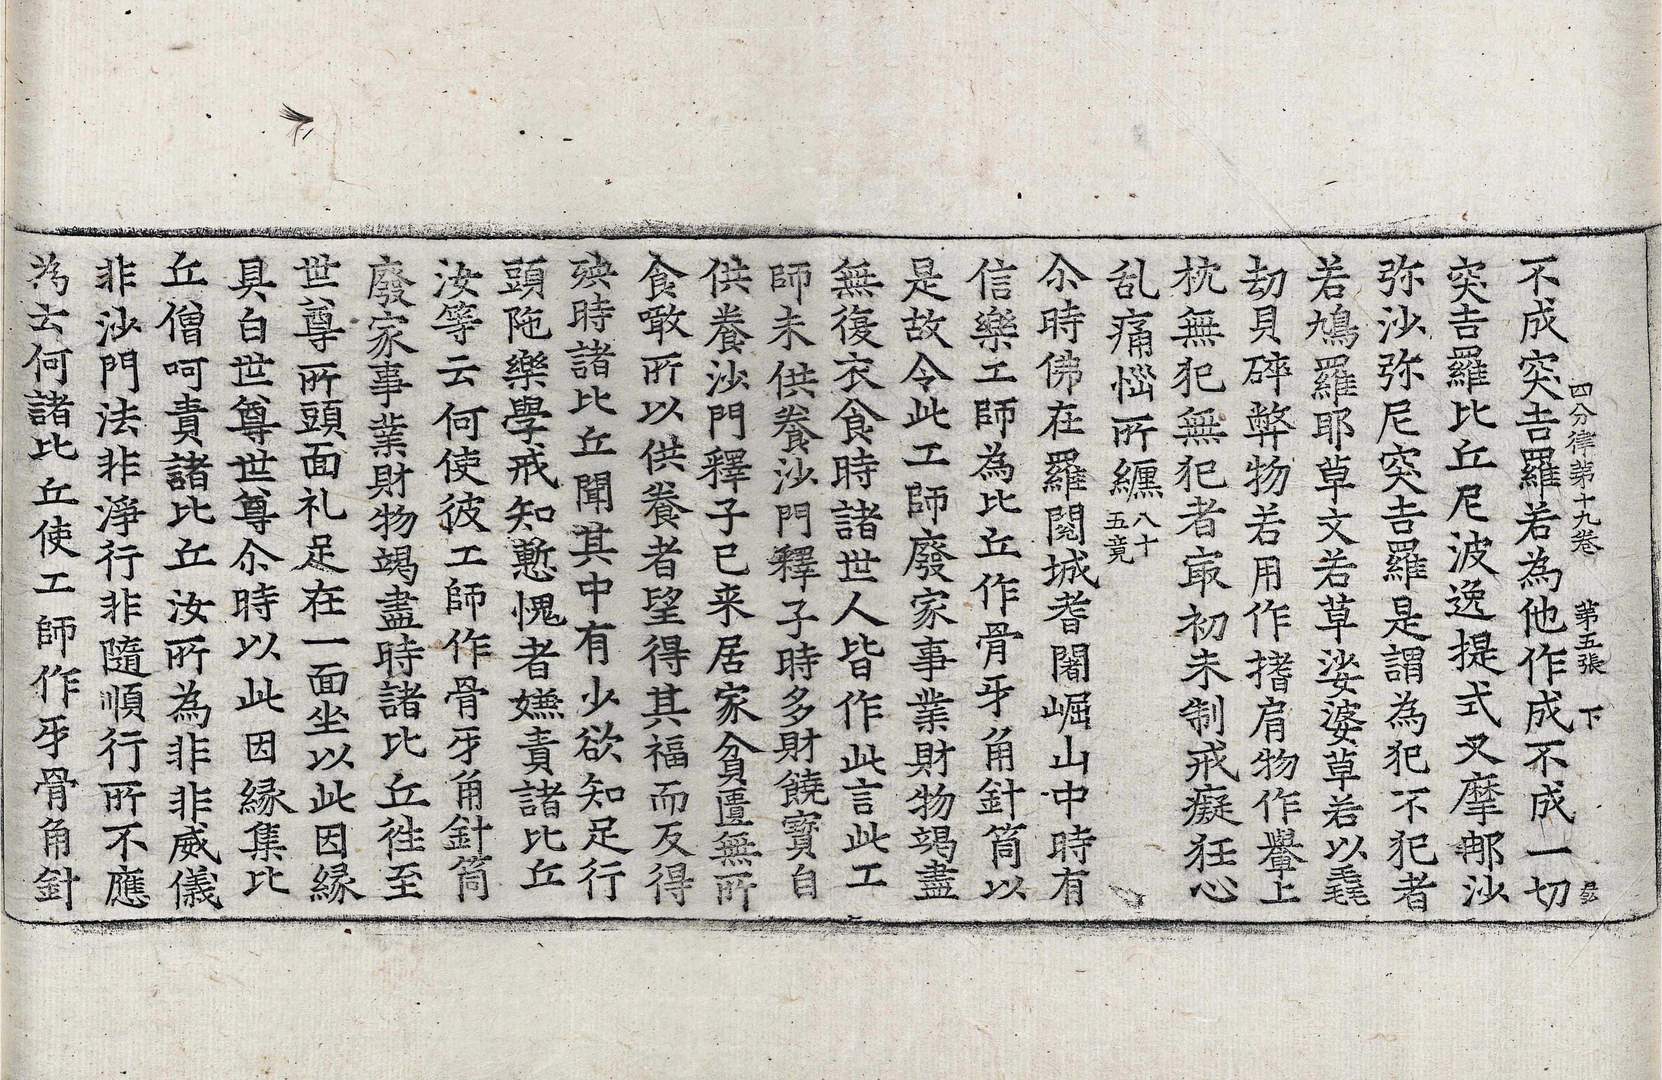 四分律苐十九卷 苐五張 下
不成突吉羅若為他作成不成一切
突吉羅比丘尼波逸提式叉摩那沙
弥沙弥尼突吉羅是謂為犯不犯者
若鳩羅耶草文若草娑婆草若以毳
劫貝碎弊物若用作揩肩物作轝上
枕無犯無犯者㝡初未制戒癡狂心
乱痛惱所纏八十五竟
尒時佛在羅閱城耆闍崛山中時有
信樂工師為比丘作骨牙角針筒以
是故令此工師廢家事業財物竭盡
無復衣食時諸世人皆作此言此工
師未供養沙門釋子時多財饒寶自
供養沙門釋子已来居家貧匱無所
食噉所以供養者望得其福而反得
殃時諸比丘聞其中有少欲知足行
頭陁樂學戒知慙愧者嫌責諸比丘
汝等云何使彼工師作骨牙角針筒
廢家事業財物竭盡時諸比丘徃至
世尊所頭面礼足在一面坐以此因縁
具白世尊世尊尒時以此因縁集比
丘僧呵責諸比丘汝所為非非威儀
非沙門法非淨行非隨順行所不應
為云何諸比丘使工師作牙骨角針